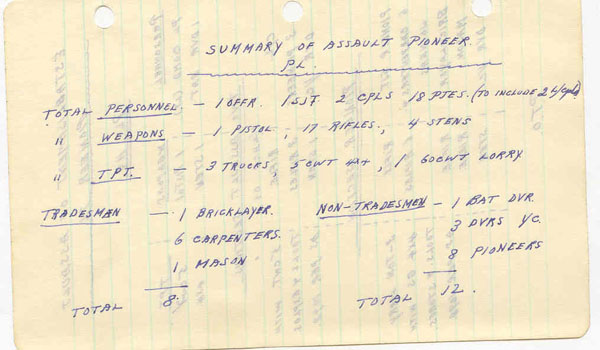 SUMMARY OF ASSAULT PIONEER
PL.
TOTAL PERSONNEL - 1 OFFR. 1 SJT 2 CPLS 18 PTES. (TO INCLUDE 2 L/Cpls)
" WEAPONS - 1 PISTOL, 17 RIFLES, 4 STENS
" TPT. - 3 TRUCKS, 5 CWT 4x4, 1 60CWT LORRY
TRADESMAN - 1 BRICKLAYER. NON-TRADESMEN - 1 BAT DVR.
6 CARPENTERS. 3 DVRS I/C.
1 MASON 8 PIONEERS
TOTAL 8. TOTAL 12.